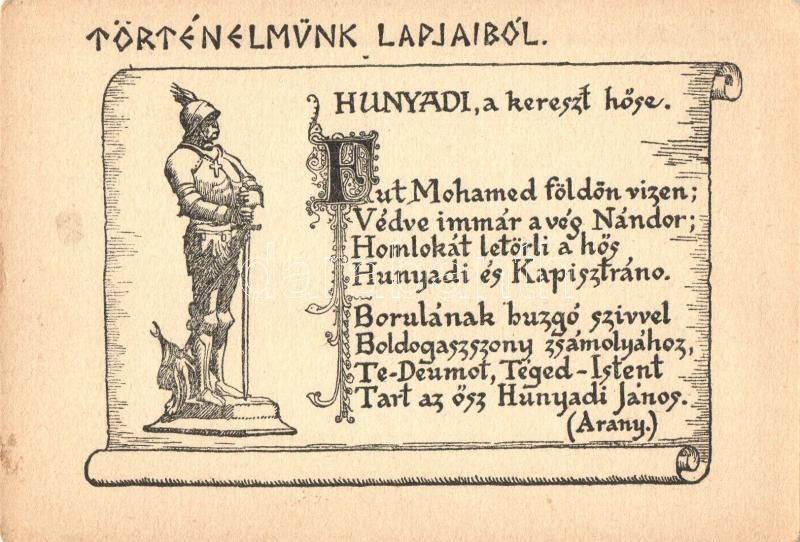 TÖRTÉNELMÜNK LAPJAIBÓL.
HUNYADI, a kereszt hőse.
Fut Mohamed földön vizen;
Védve immár a vég Nándor;
Homlokát letörli a hős
Hunyadi és Kapisztráno.
Borulának buzgó szivvel
Boldogaszszony zsámolyához,
Te-Deumot, Téged-Istent
Tart az ősz Hunyadi János.
(Arany.)